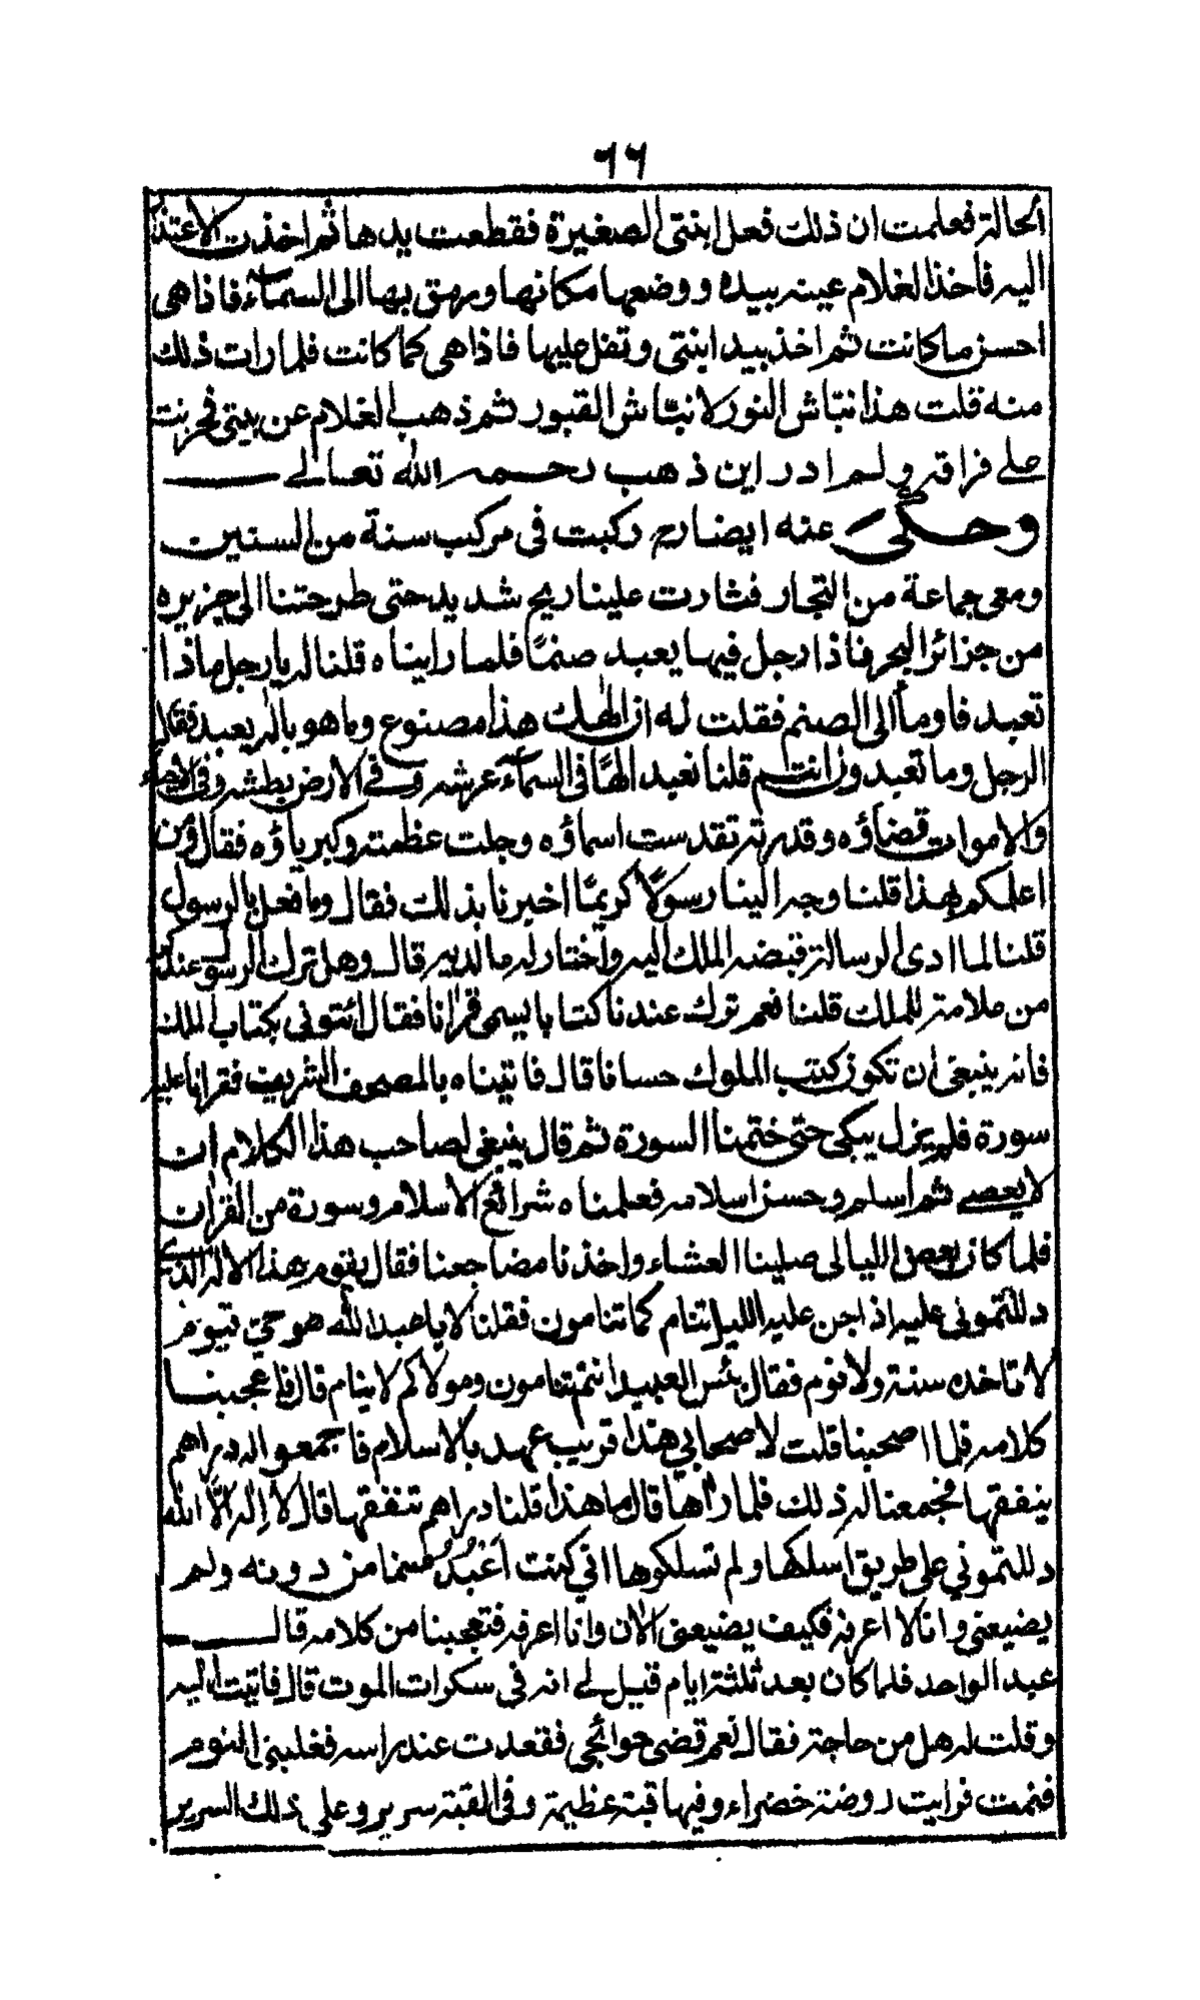 ٦٦
الحالة فعلمت ان ذلك فعل ابنتى الصغيرة فقطعت يدها ثم اخذت الاعتذار
اليه فاخذ الغلام عينه بيده ووضعها مكانها ورمق بها الى السماء فاذا هى
احسن ما كانت ثم اخذ بيد ابنتى وتفل عليها فاذا هى كما كانت فلما رات ذلك
منه قلت هذا نباش النور لا نباش القبور ثم ذهب الغلام عن بيتى فحزنت
على فراقه ولم ادر اين ذهب رحمه الله تعالى
وحكى عنه ايضا رح ركبت فى مركب سنة من السنين
ومعى جماعة من التجار فثارت علينا ريح شديد حتى طرحتنا الى جزيره
من جزائر البحر فاذا رجل فيها يعبد صنمًا فلما رايناه قلنا له يا رجل ماذا
تعبد فاومأ الى الصنم فقلت له ان الهك هذا مصنوع وما هو باله يعبد فقال
الرجل وما تعبدون انتم قلنا نعبد الهًا فى السماء عرشه وفى الارض بطشه وفى الاحياء
والاموات قضاؤه وقدرته تقدست اسماؤه وجلت عظمته وكبرياؤه فقال ومن
اعلمكم بهذا قلنا وجه الينا رسولًا كريمًا اخبرنا بذلك فقال وما فعل بالرسول
قلنا لما ادى الرسالة قبضه الملك اليه واختار له ما لديه قال وهل ترك الرسول عندكم
من علامة للملك قلنا نعم ترك عندنا كتابا يسمى قرانا فقال ائتونى بكتاب الملك
فانه ينبغى ان تكون كتب الملوك حسانا قال فاتيناه بالمصحف الشريف فقرانا عليه
سورة فلم يزل يبكى حتى ختمنا السورة ثم قال ينبغى لصاحب هذا الكلام ان
لا يعصى ثم اسلم وحسن اسلامه فعلمناه شرائع الاسلام وسورة من القران
فلما كان بعض الليالى صلينا العشاء واخذنا مضاجعنا فقال يقوم هذا الاله الذى
دللتمونى عليه اذا جن عليه الليل تنام كما تنامون فقلنا لا يا عبد الله هو حى قيوم
لا تاخذه سنة ولا نوم فقال بئس العبيد انتم تنامون ومولاكم لا ينام قال فاعجبنا
كلامه فلما اصحبنا قلت لاصحابي هذا قريب عهد بالاسلام فاجمعوا له دراهم
ينفقها فجمعنا له ذلك فلما راها قال ما هذا قلنا دراهم تنفقها قال لا اله الا الله
دللتموني على طريق اسلكها ولم تسلكوها اني كنت أعبد صنما من دونه ولم
يضيعنى وانا لا اعرفه فكيف يضيعنى الان وانا اعرفه فتعجبنا من كلامه قال
عبد الواحد فلما كان بعد ثلثة ايام قيل لى انه فى سكرات الموت قال فاتيت اليه
وقلت له هل من حاجة فقال نعم قضى حوائجى فقعدت عند راسه فغلبنى النوم
فنمت فرايت روضة خضراء وفيها قبة عظيمة وفى القبة سرير وعلى ذلك السرير